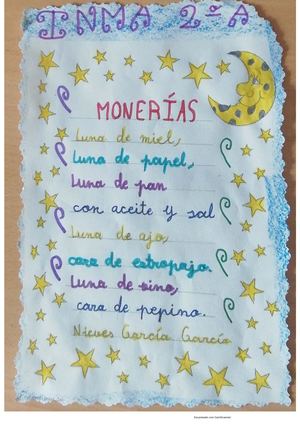 INMA 2ºA
MONERÍAS
Luna de miel,
Luna de papel,
Luna de pan
con aceite y sal
Luna de ajo,
cara de estropajo.
Luna de sino,
cara de pepino.
Nieves García García